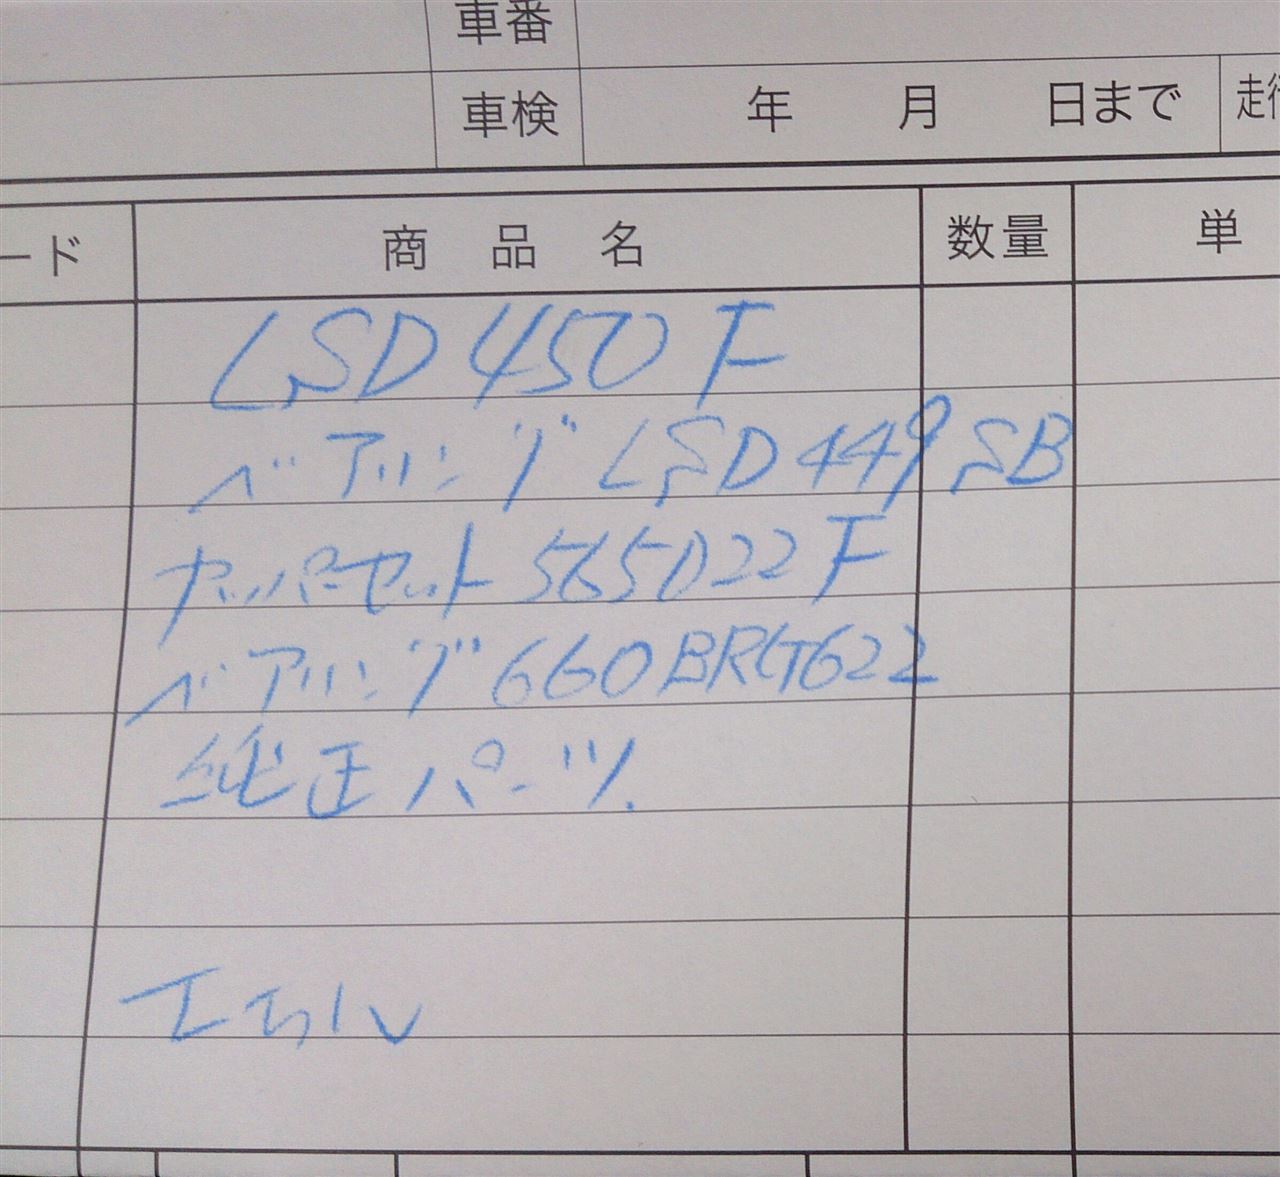 車番
車検 年 月 日まで 走行
ード 商品名 数量 単
LSD450F
ベアリング LSD449SB
ナッパーセット 565D22F
ベアリング 660BRGT622
純正パーツ